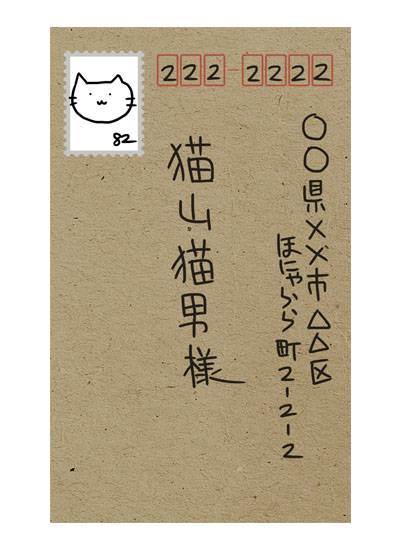 222-2222
〇〇県××市△△区
ほにゃらら町2-2-2
猫山猫男様
82